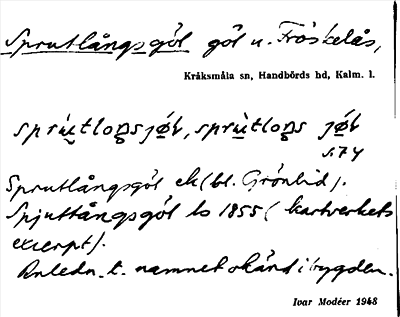 Sprutlångsgöl göl u. Fröskelås,
Kråksmåla sn, Handbörds hd, Kalm. l.
sprẁtloŋsjø̀ɫ, sprẁtloŋs jø̀ɫ
s. 74
Sprutlångsgöl ek (bl. Grönlid).
Spjuttångsgöl ls 1855 (kartverkets
excerpt).
Anledn. t. namnet okänd i bygden.
Ivar Modéer 1948